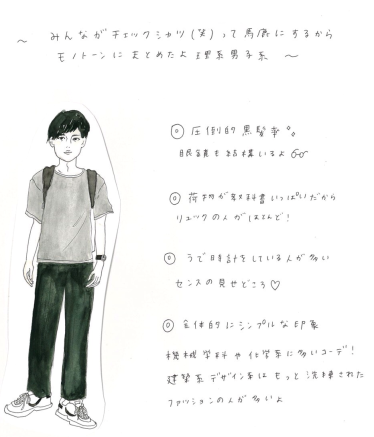 ～ みんながチェックシャツ(笑)って馬鹿にするから
モノトーンにまとめたよ 理系男子系 ～
◎ 圧倒的黒髪率。
眼鏡も結構いるよ
◎ 荷物が教科書いっぱいだから
リュックの人がほとんど!
◎ うで時計をしている人が多い
センスの見せどころ♡
◎ 全体的にシンプルな印象
機械学科や化学系に多いコーデ!
建築系デザイン系はもっと洗練された
ファッションの人が多いよ